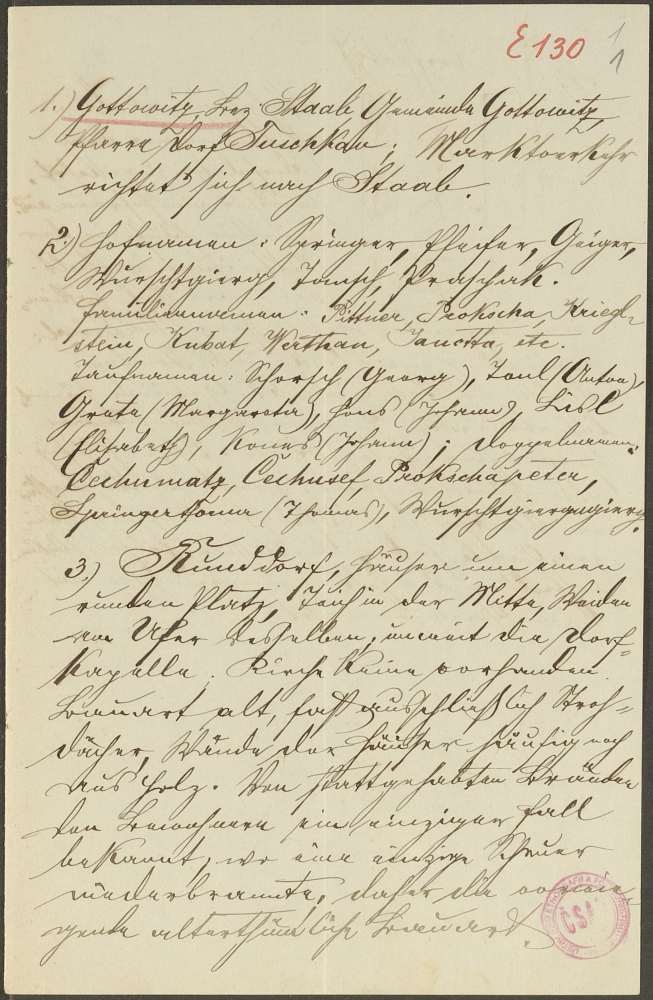 E 130 1
1
1.) Gottowitz, Bez. Staab Gemeinde Gottowitz,
Pfarre Dorf Tuschkau; Marktverkehr
richtet sich nach Staab.
2.) Hofnamen: Springer, Pfeifer, Geiger,
Wurschtgierg, Tomsch, Praschak.
Familiennamen: Pittner, Prokscha, Kriegl-
stein, Kubat, Werthan, Janotta, etc.
Taufnamen: Schorsch (Georg), Tonl (Anton),
Greta (Margareta), Hons (Johann), Liesl
(Elisabeth), Hones (Johann); Doppelnamen:
Cechumatz, Cechusef, Prokschapeter,
Springerthoma (Thomas), Wurschtgiergagierg.
3.) Runddorf, Häuser um einen
runden Platz, Teich in der Mitte, Weiden
am Ufer desselben, unweit die Dorf-
kapelle. Kirche keine vorhanden.
Bauart alt, fast ausschließlich Stroh-
dächer, Wände der Häuser häufig noch
aus Holz. Von stattgehabten Bränden
den Bewohnern ein einziger Fall
bekannt, wo eine einzige Scheuer
niederbrannte, daher die vorwie-
gende alterthümliche Bauart.
ČSA